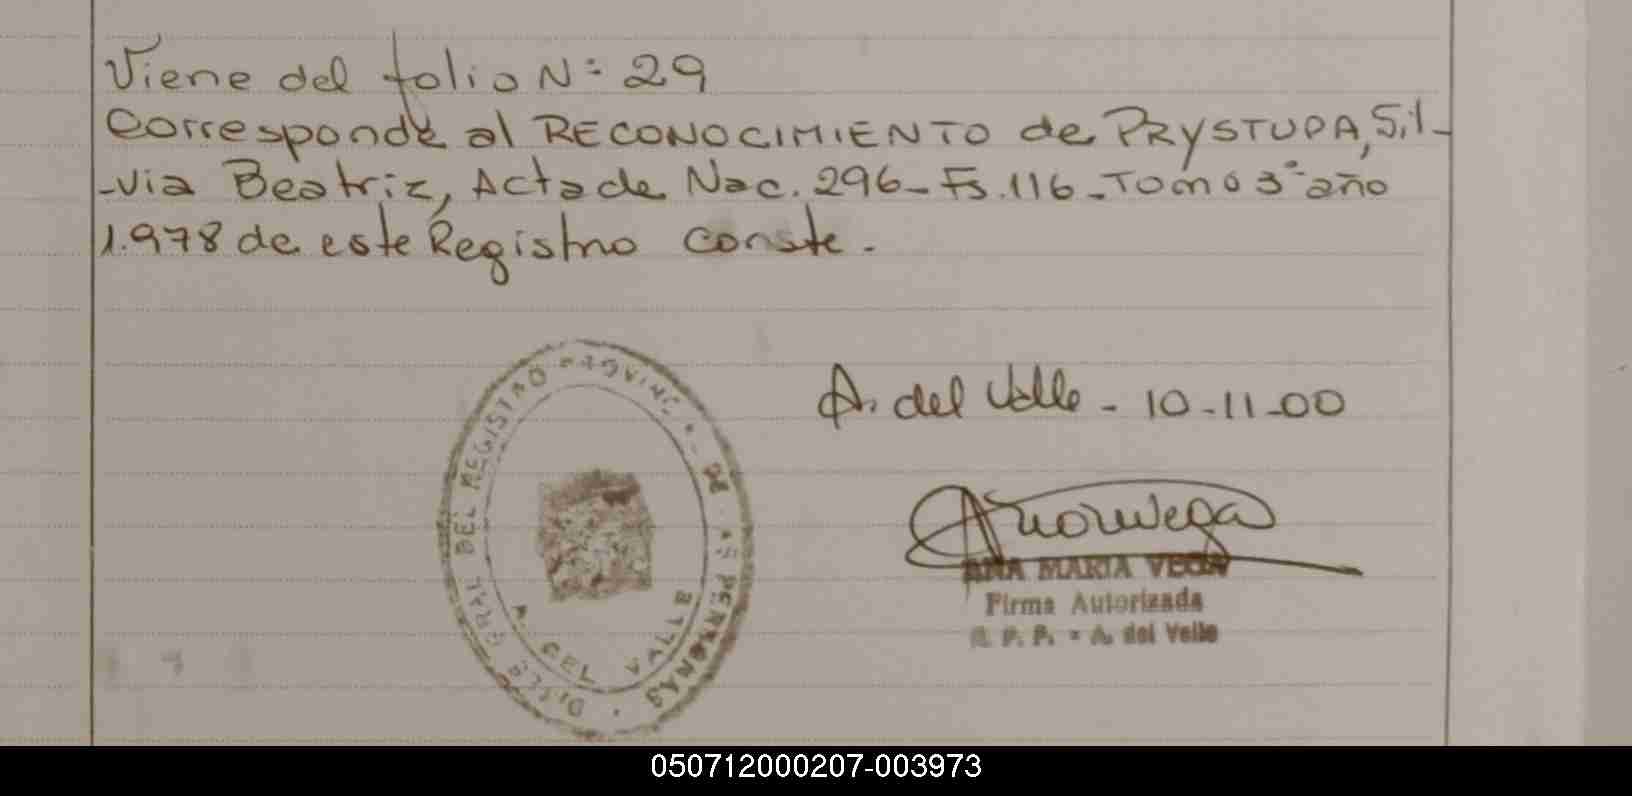 Viene del folio Nº 29
Corresponde al RECONOCIMIENTO de PRYSTUPA, Sil-
-via Beatriz, Acta de Nac. 296 - Fs. 116 - Tomo 3º año
1.978 de este Registro Conste.
A. del Valle - 10-11-00
ANA MARIA VEGA
Firma Autorizada
R. P. P. - A. del Valle
DEL REGISTRO PROVINC. DE AS PERSONAS
A. DEL VALLE
050712000207-003973